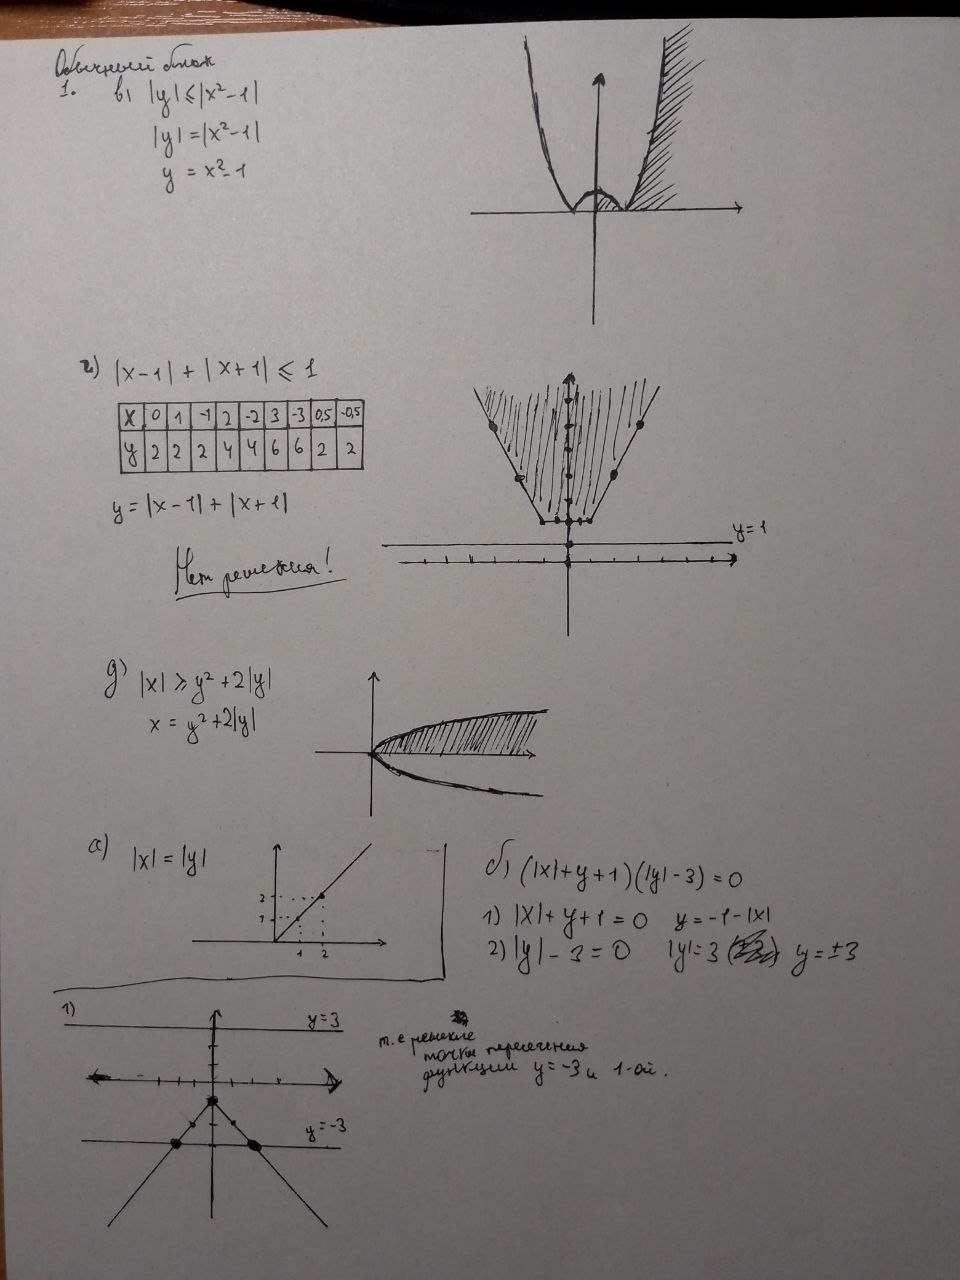 Обычный блок
1. в) |y| ⩽ |x²-1|
|y| = |x²-1|
y = x²-1
г) |x-1| + |x+1| ⩽ 1
x 0 1 -1 2 -2 3 -3 0,5 -0,5
y 2 2 2 4 4 6 6 2 2
y = |x-1| + |x+1|
y=1
Нет решения!
д) |x| ⩾ y² + 2|y|
x = y² + 2|y|
а) |x| = |y|
2
1
1 2
б) (|x|+y+1)(|y|-3) = 0
1) |x|+y+1 = 0 y = -1-|x|
2) |y| - 3 = 0 |y| = 3 y = ±3
1)
y=3
y=-3
т.е решение
точки пересечения
функции y = -3 и 1-ой.